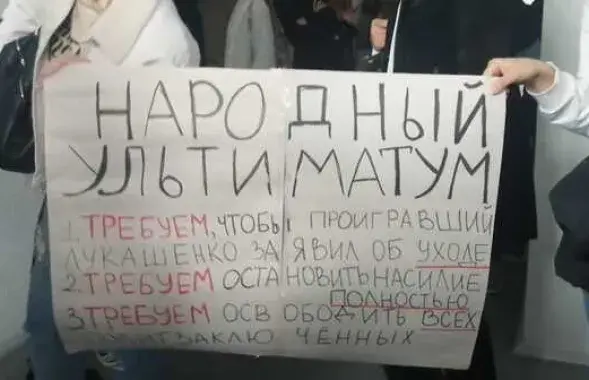 НАРОДНЫЙ
УЛЬТИМАТУМ
1. ТРЕБУЕМ, ЧТОБЫ ПРОИГРАВШИЙ
ЛУКАШЕНКО ЗАЯВИЛ ОБ УХОДЕ
2. ТРЕБУЕМ ОСТАНОВИТЬ НАСИЛИЕ
ПОЛНОСТЬЮ
3. ТРЕБУЕМ ОСВОБОДИТЬ ВСЕХ
ПОЛИТЗАКЛЮЧЁННЫХ